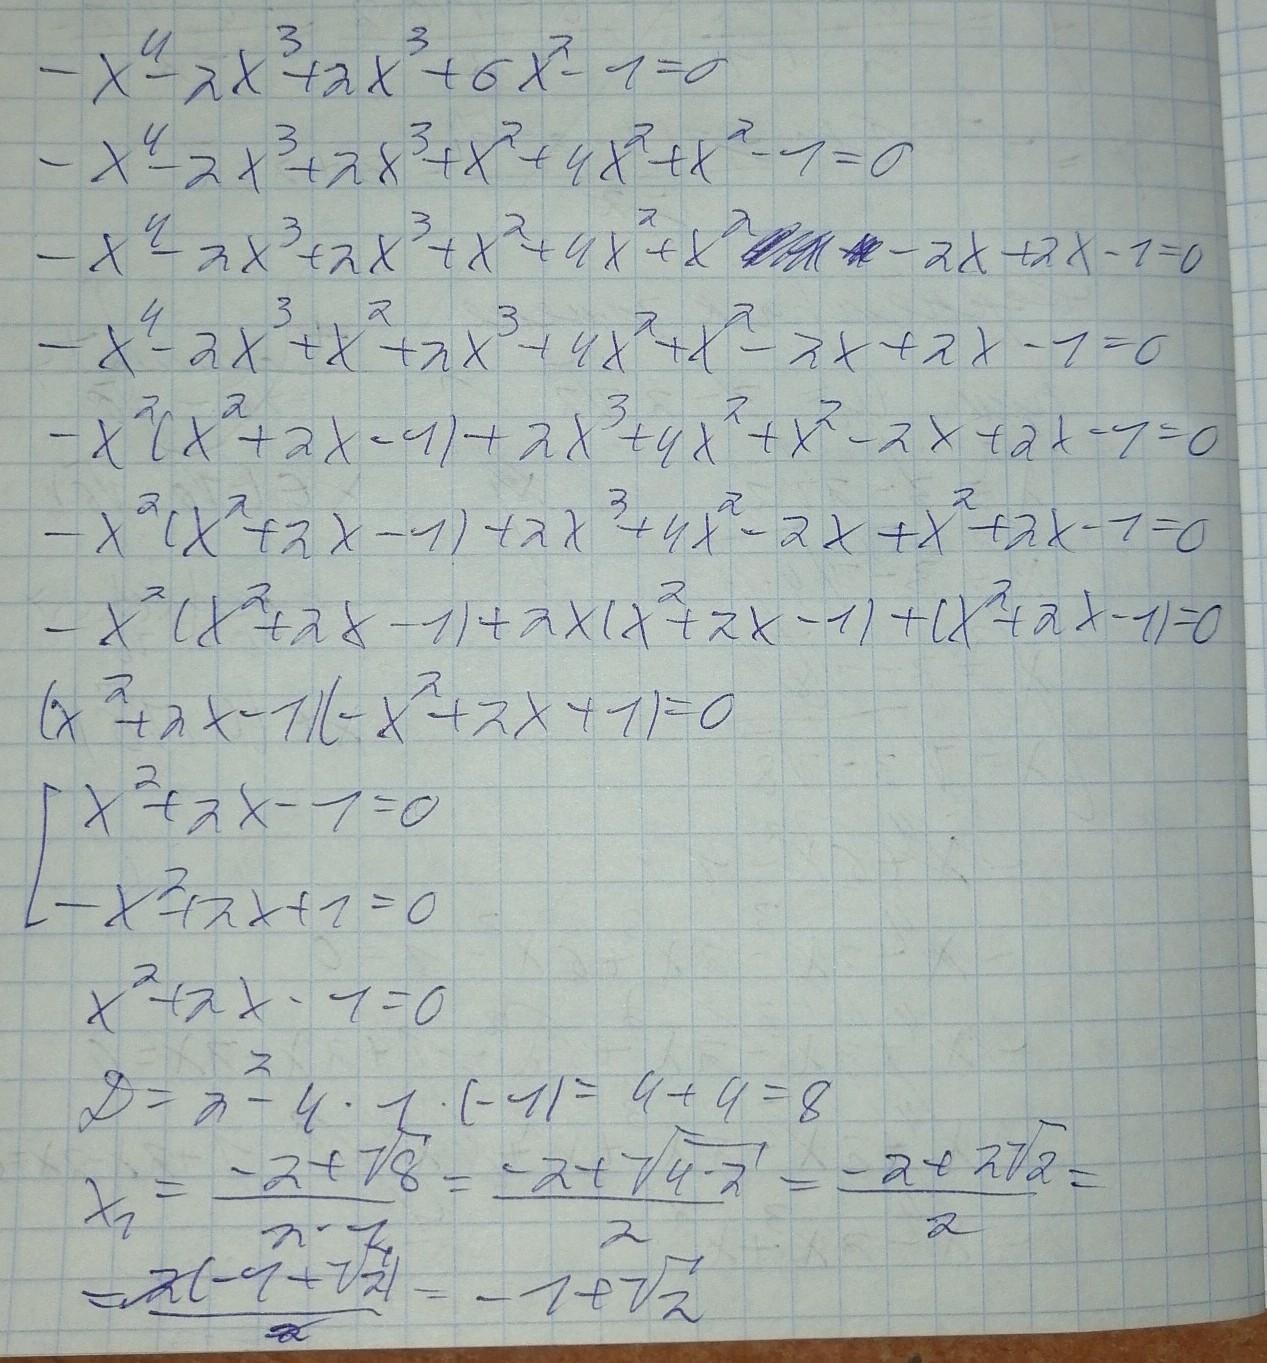 -x⁴-2x³+2x³+6x²-1=0
-x⁴-2x³+2x³+x²+4x²+x²-1=0
-x⁴-2x³+2x³+x²+4x²+x²-2x+2x-1=0
-x⁴-2x³+x²+2x³+4x²+x²-2x+2x-1=0
-x²(x²+2x-1)+2x³+4x²+x²-2x+2x-1=0
-x²(x²+2x-1)+2x³+4x²-2x+x²+2x-1=0
-x²(x²+2x-1)+2x(x²+2x-1)+(x²+2x-1)=0
(x²+2x-1)(-x²+2x+1)=0
[x²+2x-1=0
-x²+2x+1=0
x²+2x-1=0
D=2²-4·1·(-1)=4+4=8
x₁=(-2+√8)/(2·1)=(-2+√(4·2))/2=(-2+2√2)/2=
=2(-1+√2)/2=-1+√2